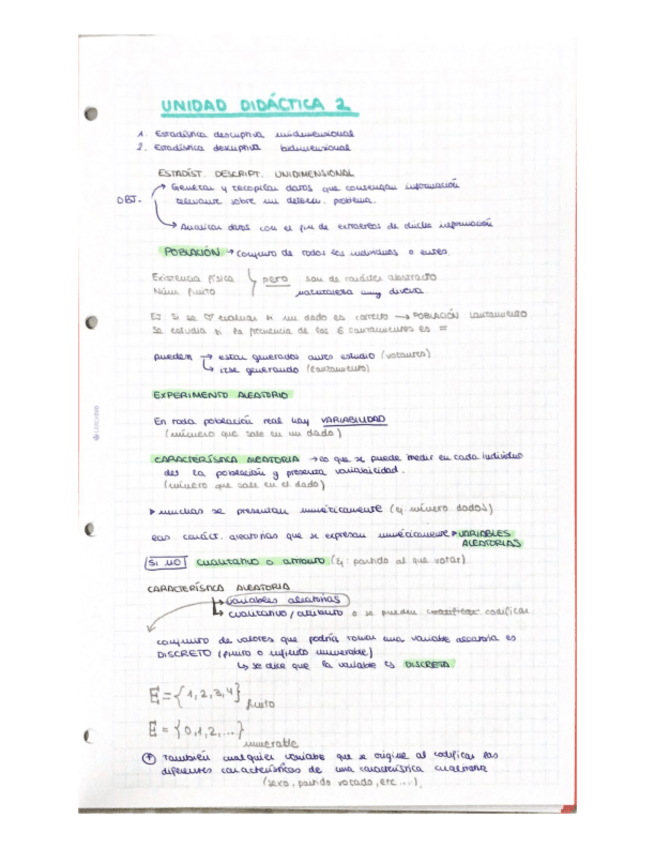 UNIDAD DIDÁCTICA 2
1. Estadística descriptiva unidimensional
2. Estadística descriptiva bidimensional
ESTADÍST. DESCRIPT. UNIDIMENSIONAL
OBJ. → Generar y recopilar datos que contengan información
relevante sobre un determ. problema.
→ Analizar datos con el fin de extraer de dicha información
POBLACIÓN → conjunto de todos los individuos o entes
Existencia física pero son de carácter abstracto
Núm finito naturaleza muy diversa
Ej: Si se evaluar si un dado es correcto → POBLACIÓN lanzamiento
Se estudia si la frecuencia de los 6 lanzamientos es =
pueden → estar generados antes estudio (votantes)
↳ irse generando (lanzamiento)
EXPERIMENTO ALEATORIO
En toda población real hay VARIABILIDAD
(número que sale en un dado)
CARACTERÍSTICA ALEATORIA → lo que se puede medir en cada individuo
de la población y presenta variabilidad.
(número que sale en el dado)
▶ muchas se presentan numéricamente (ej. número dados)
las caráct. aleatorias que se expresan numéricamente ▶ VARIABLES
ALEATORIAS
SI NO cualitativo o atributo (Ej: partido al que votar)
CARACTERÍSTICA ALEATORIA
↳ variables aleatorias
↳ cualitativo/atributo se pueden codificar
conjunto de valores que podría tomar una variable aleatoria es
DISCRETO (finito o infinito numerable)
↳ se dice que la variable es DISCRETA
E = {1,2,3,4} finito
E = {0,1,2,...} numerable
También cualquier variable que se origine al codificar las
diferentes características de una característica cualitativa
(sexo, partido votado, etc...).